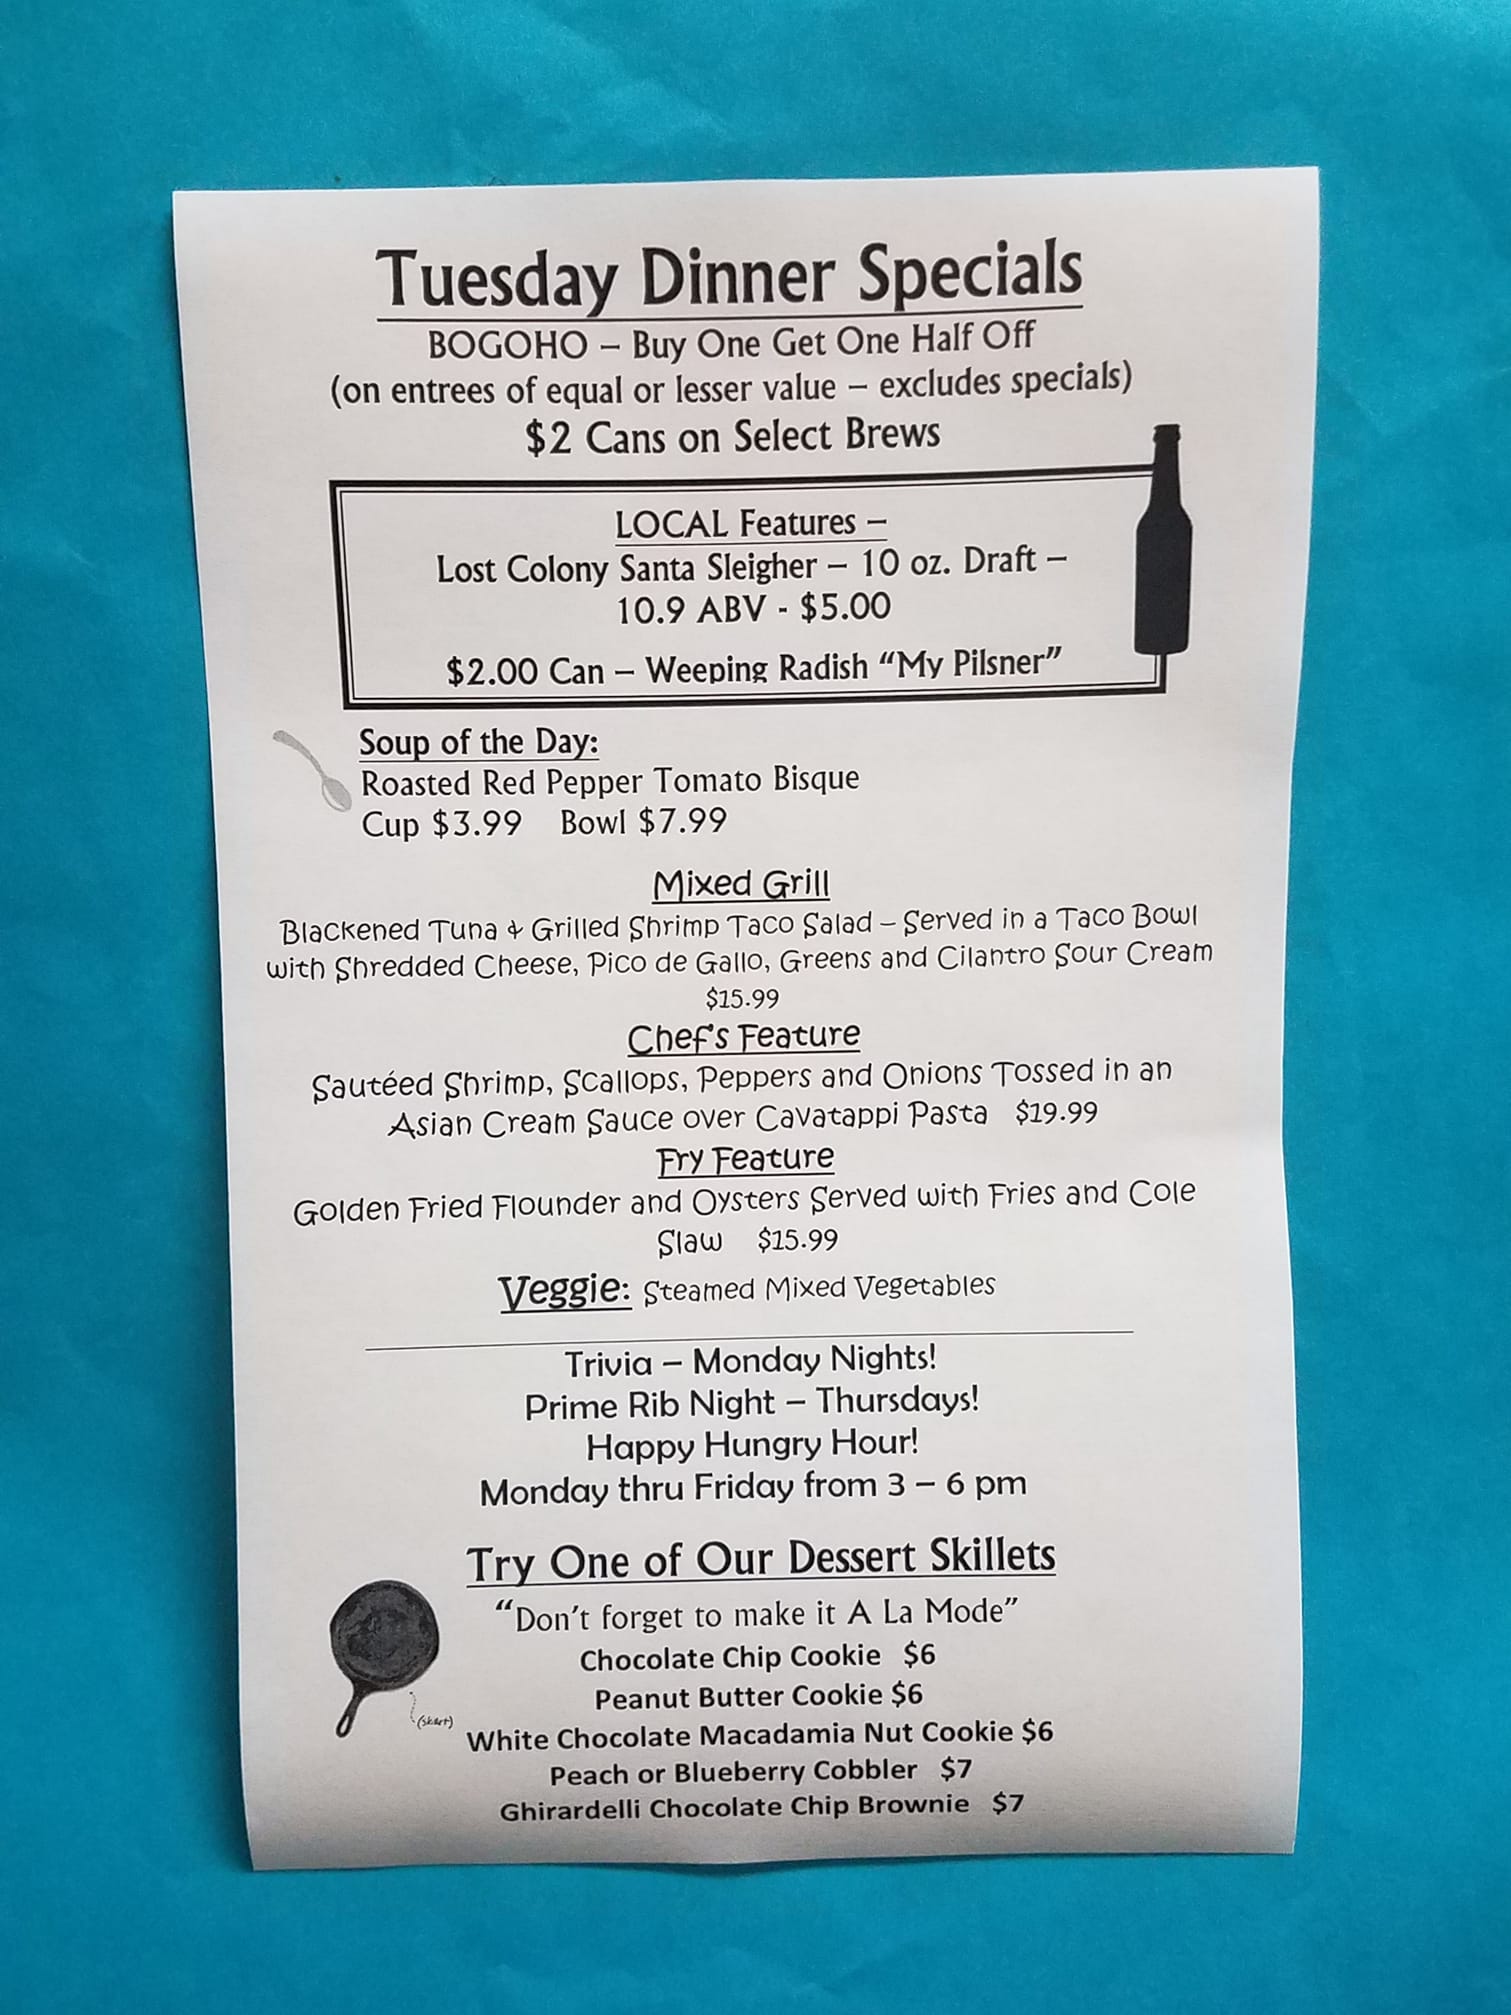 Tuesday Dinner Specials
BOGOHO – Buy One Get One Half Off
(on entrees of equal or lesser value – excludes specials)
$2 Cans on Select Brews
LOCAL Features –
Lost Colony Santa Sleigher – 10 oz. Draft –
10.9 ABV - $5.00
$2.00 Can – Weeping Radish “My Pilsner”
Soup of the Day:
Roasted Red Pepper Tomato Bisque
Cup $3.99 Bowl $7.99
Mixed Grill
Blackened Tuna & Grilled Shrimp Taco Salad – Served in a Taco Bowl
with Shredded Cheese, Pico de Gallo, Greens and Cilantro Sour Cream
$15.99
Chef's Feature
Sautéed Shrimp, Scallops, Peppers and Onions Tossed in an
Asian Cream Sauce over Cavatappi Pasta $19.99
Fry Feature
Golden Fried Flounder and Oysters Served with Fries and Cole
Slaw $15.99
Veggie: Steamed Mixed Vegetables
Trivia – Monday Nights!
Prime Rib Night – Thursdays!
Happy Hungry Hour!
Monday thru Friday from 3 – 6 pm
Try One of Our Dessert Skillets
“Don’t forget to make it A La Mode”
Chocolate Chip Cookie $6
Peanut Butter Cookie $6
White Chocolate Macadamia Nut Cookie $6
Peach or Blueberry Cobbler $7
Ghirardelli Chocolate Chip Brownie $7